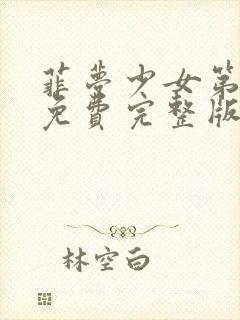 菲梦少女第
免费完整版
林空白